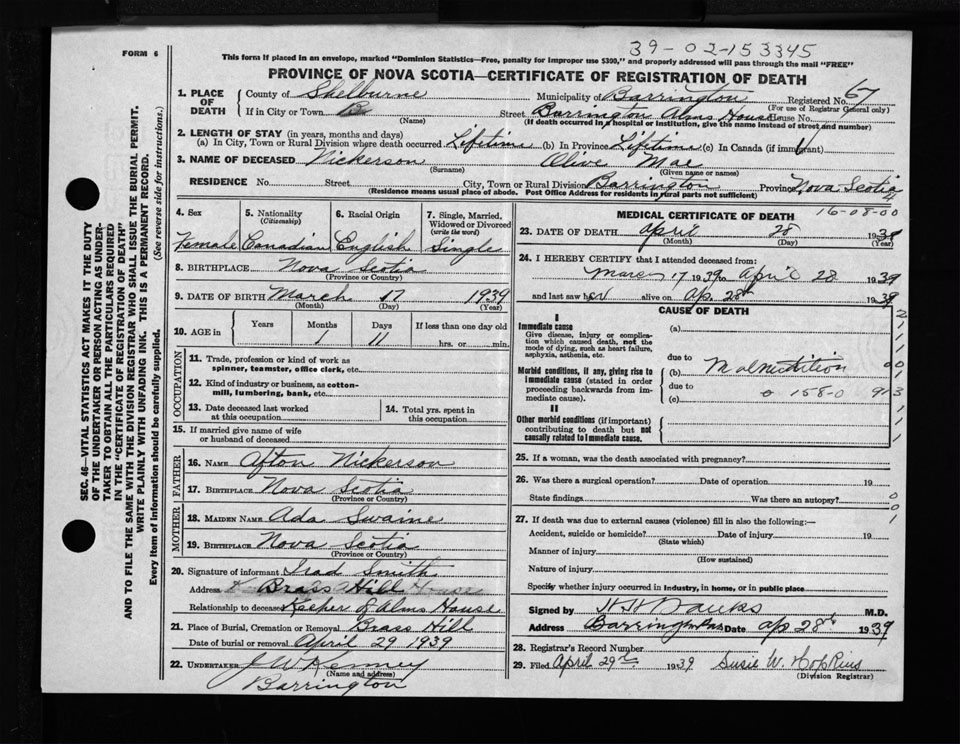 39-02-153345
FORM 6
This form if placed in an envelope, marked "Dominion Statistics—Free, penalty for improper use $300," and properly addressed will pass through the mail "FREE"
PROVINCE OF NOVA SCOTIA—CERTIFICATE OF REGISTRATION OF DEATH
SEC. 46—VITAL STATISTICS ACT MAKES IT THE DUTY
OF THE UNDERTAKER OR PERSON ACTING AS UNDER-
TAKER TO OBTAIN ALL THE PARTICULARS REQUIRED
IN THE "CERTIFICATE OF REGISTRATION OF DEATH"
AND TO FILE THE SAME WITH THE DIVISION REGISTRAR WHO SHALL ISSUE THE BURIAL PERMIT.
WRITE PLAINLY WITH UNFADING INK. THIS IS A PERMANENT RECORD.
Every item of information should be carefully supplied. (See reverse side for instructions.)
1. PLACE OF DEATH County of Shelburne Municipality of Barrington Registered No. 67
(For use of Registrar General only)
If in City or Town B Street Barrington Alms House House No.
(Name) (If death occurred in a hospital or institution, give the name instead of street and number)
2. LENGTH OF STAY (in years, months and days)
(a) In City, Town or Rural Division where death occurred Lifetime (b) In Province Lifetime (c) In Canada (if immigrant)
3. NAME OF DECEASED Nickerson Olive Mae
(Surname) (Given name or names)
RESIDENCE No. Street City, Town or Rural Division Barrington Province Nova Scotia
(Residence means usual place of abode. Post Office Address for residents in rural parts not sufficient)
4. Sex Female
5. Nationality (Citizenship) Canadian
6. Racial Origin English
7. Single, Married, Widowed or Divorced (write the word) Single
8. BIRTHPLACE Nova Scotia
(Province or Country)
9. DATE OF BIRTH March 17 1939
(Month) (Day) (Year)
10. AGE in Years Months 1 Days 11 If less than one day old hrs. or min.
OCCUPATION
11. Trade, profession or kind of work as spinner, teamster, office clerk, etc.
12. Kind of industry or business, as cotton-mill, lumbering, bank, etc.
13. Date deceased last worked at this occupation
14. Total yrs. spent in this occupation
15. If married give name of wife or husband of deceased
FATHER
16. NAME Afton Nickerson
17. BIRTHPLACE Nova Scotia
(Province or Country)
MOTHER
18. MAIDEN NAME Ada Swaine
19. BIRTHPLACE Nova Scotia
(Province or Country)
20. Signature of informant Irad Smith
Address Brass Hill
Relationship to deceased Keeper of Alms House
21. Place of Burial, Cremation or Removal Brass Hill
Date of burial or removal April 29 1939
22. UNDERTAKER J W Kenney
(Name and address)
Barrington
MEDICAL CERTIFICATE OF DEATH 16-08-00
23. DATE OF DEATH April 28 1939
(Month) (Day) (Year)
24. I HEREBY CERTIFY that I attended deceased from:
17 1939 to April 28 1939
and last saw her alive on Ap. 28th 1939
CAUSE OF DEATH
I
Immediate cause
Give disease, injury or complication which caused death, not the mode of dying, such as heart failure, asphyxia, asthenia, etc.
(a)
due to
Morbid conditions, if any, giving rise to immediate cause (stated in order proceeding backwards from immediate cause).
(b) Malnutrition
due to
158-0
(c)
II
Other morbid conditions (if important) contributing to death but not causally related to immediate cause.
25. If a woman, was the death associated with pregnancy?
26. Was there a surgical operation? Date of operation 19
State findings Was there an autopsy?
27. If death was due to external causes (violence) fill in also the following:—
Accident, suicide or homicide? Date of injury 19
(State which)
Manner of injury
(How sustained)
Nature of injury
Specify whether injury occurred in industry, in home, or in public place
Signed by H H Banks M.D.
Address Barrington Date Ap 28th 1939
28. Registrar's Record Number
29. Filed April 29th 1939 Susie W. Hopkins
(Division Registrar)